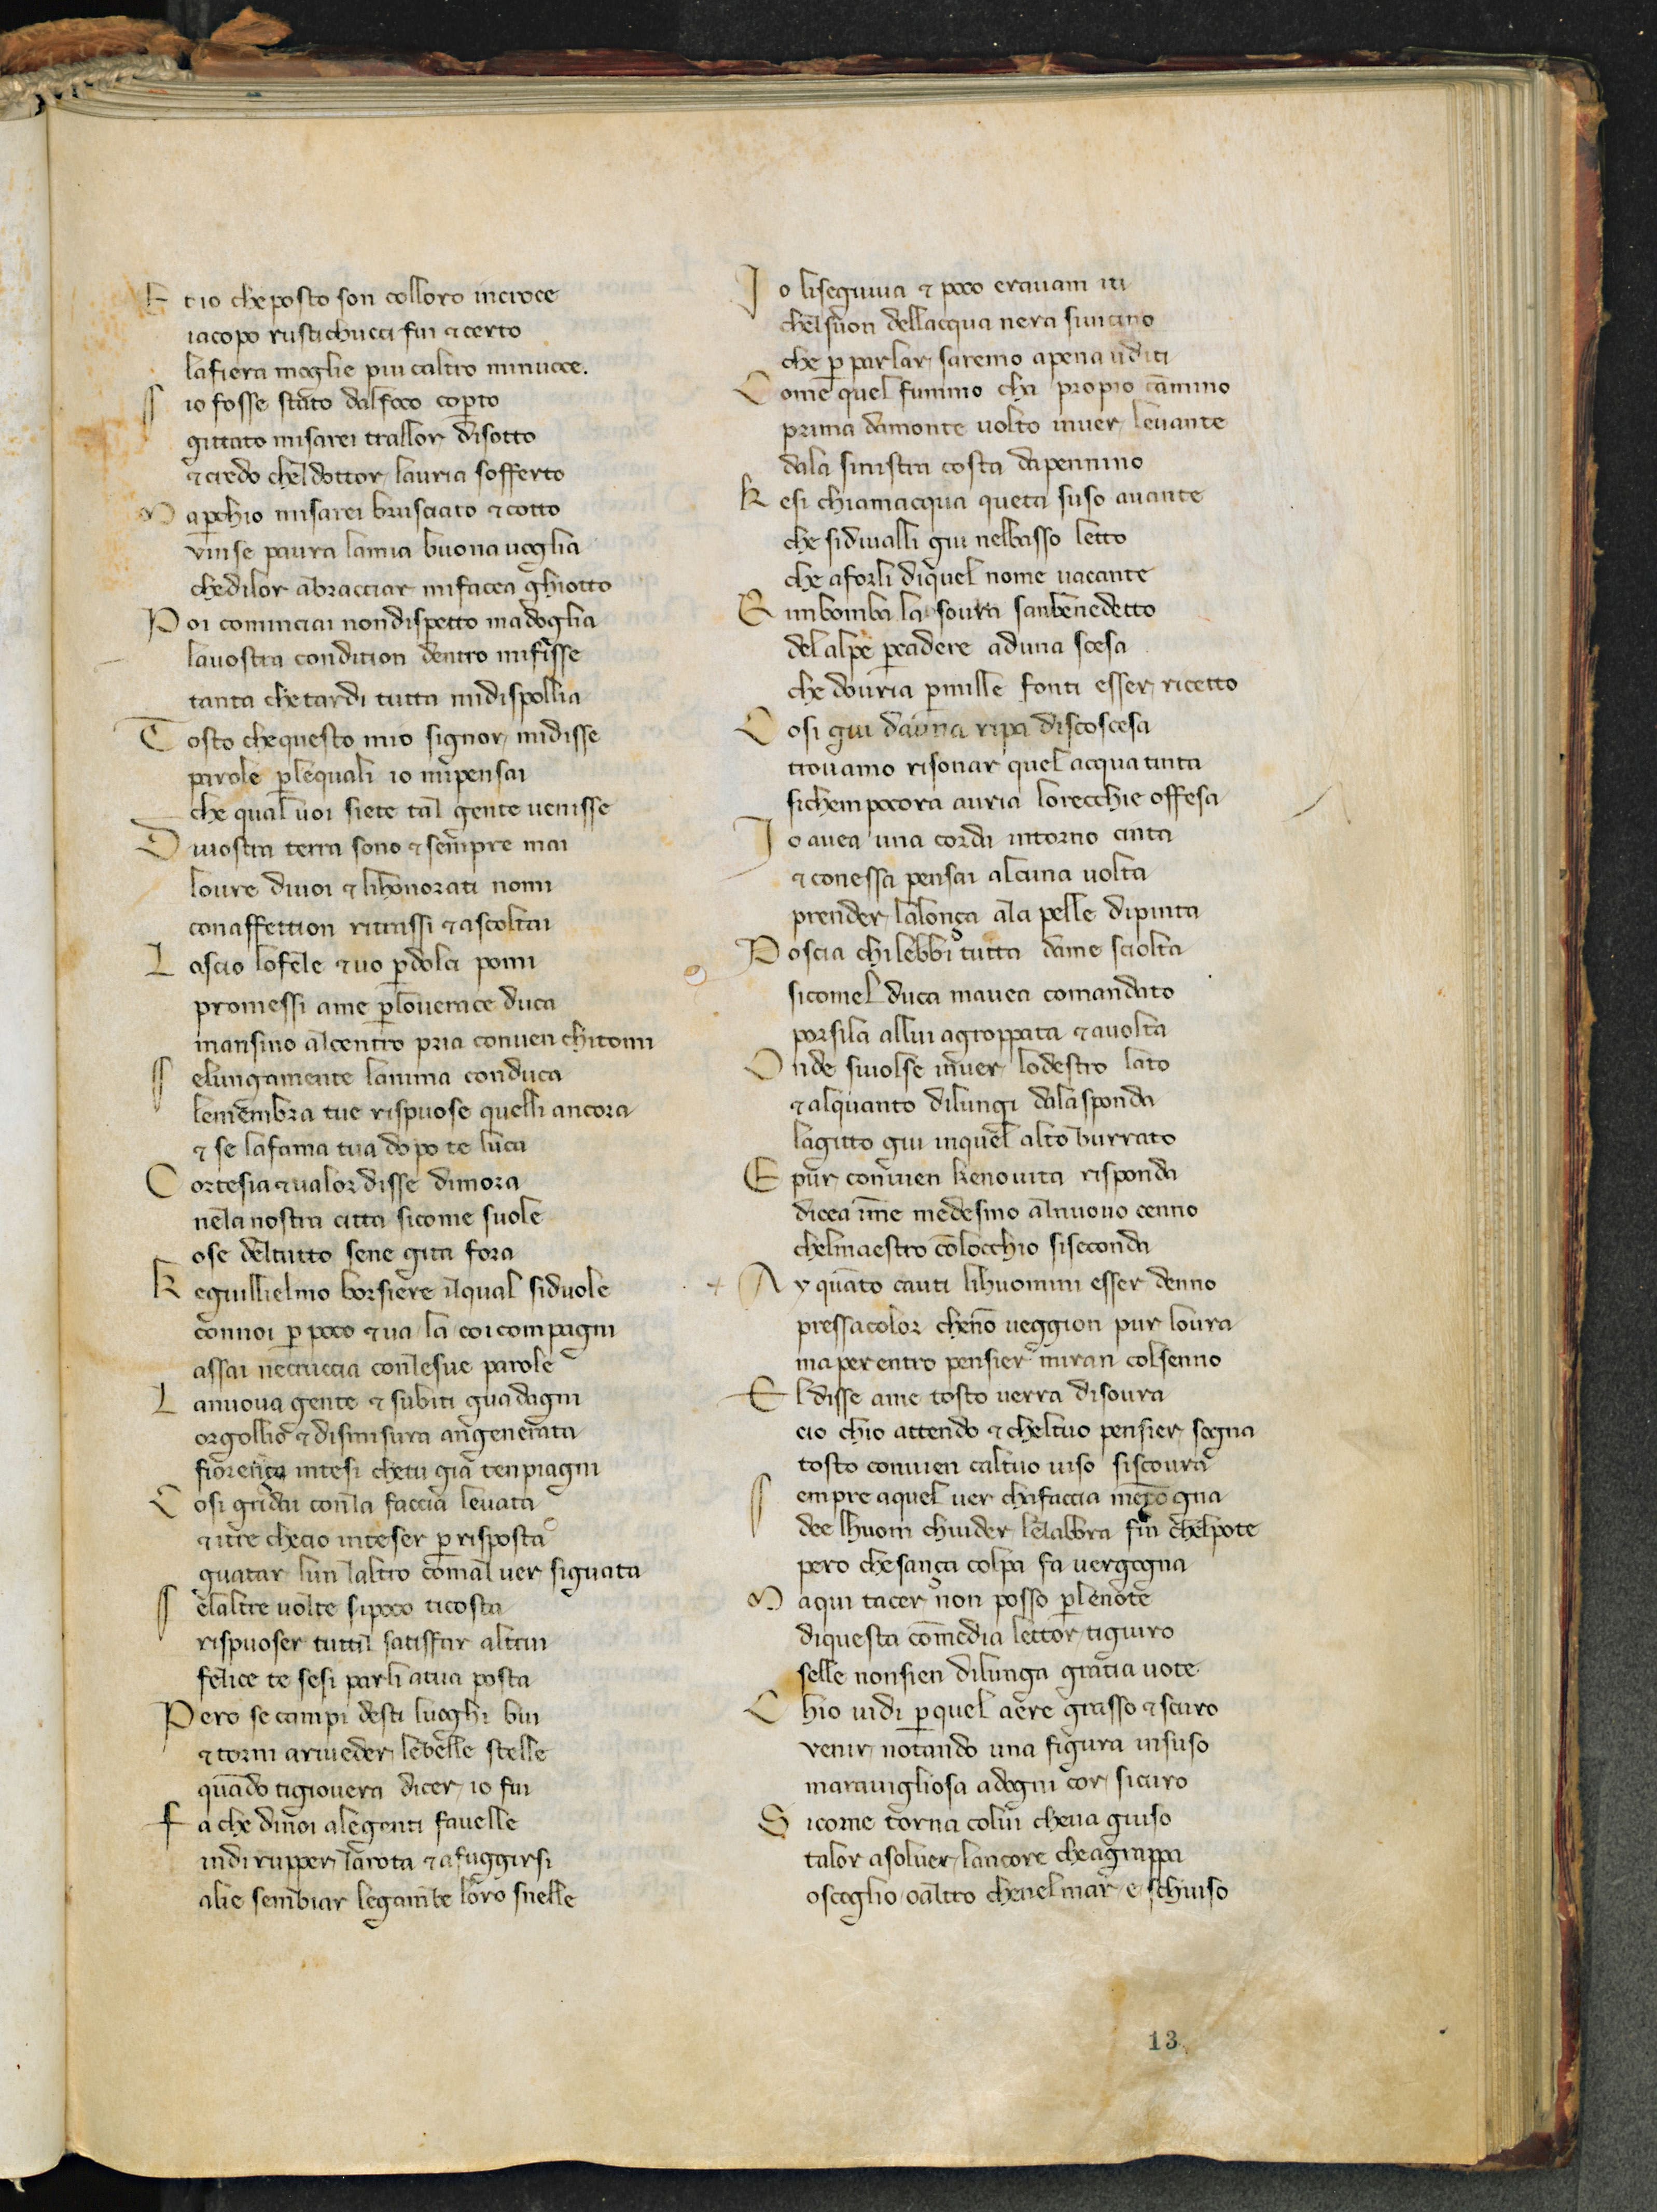 E t io che posto son colloro incroce
iacopo rustichucci fui & certo
lafiera moglie piu caltro minuoce.
S io fosse stato dalfoco coperto
gittato misarei trallor disotto
& credo chel dottor lauria sofferto
M a perchio misarei brusciato & cotto
vinse paura lamia buona uoglia
chedilor abracciar mifacea ghiotto
P oi cominciai nondispetto madoglia
lauostra condition dentro mifisse
tanta che tardi tutta midispollia
T osto chequesto mio signor midisse
parole per lequali io mipensai
che qual uoi siete tal gente uenisse
D iuostra terra sono & sempre mai
loure diuoi & lihonorati nomi
conaffettion ritrassi & ascoltai
L ascio lofele & uo perdolci pomi
promessi ame perlouerace duca
mansino alcentro pria conuen chitomi
S elungamente lanima conduca
lemembra tue rispuose quelli ancora
& se lafama tua dopo te luca
C ortesia & ualor disse dimora
nela nostra citta sicome suole
ose deltutto sene gita fora
K eguillielmo borsiere ilqual siduole
connoi per poco & ua la coi compagni
assai necruccia conlesue parole
L anuoua gente & subiti guadagni
orgollio & dismisura angenerata
fiorença intesi chetu gia tenpiagni
C osi gridai conla faccia leuata
& itre checio inteser per risposta
guatar lun laltro comal uer siguata
S elaltre uolte sipoco ticosta
rispuoser tuttil satiffar altrui
felice te sesi parli atua posta
P ero se campi desti luoghi bui
& torni ariueder lebelle stelle
quando tigiouera dicer io fui
f a che dinoi alegenti fauelle
indi rupper larota & afuggirsi
alie sembiar legambe loro snelle
I o liseguiua & poco erauam iti
chelsuon dellacqua nera siuicino
che per parlar saremo apena uditi
C ome quel fiummo cha propio cammino
prima damonte uolto inuer leuante
dala sinistra costa dapennino
K esi chiamacqua queta suso auante
che sidiualli giu nelbasso letto
che aforli diquel nome uacante
R imbomba la soura sanbenedetto
delalpe percadere aduna scesa
che douria permille fonti esser ricetto
C osi giu dauna ripa discoscesa
trouamo risonar quel acqua tinta
sichempocora auria lorecchie offesa
I o auea una corda intorno cinta
& conessa pensai alcuna uolta
prender lalonça ala pelle dipinta
P oscia chilebbi tutta dame sciolta
sicomel duca mauea comandato
porsila allui agroppata & auolta
O nde siuolse inuer lodestro lato
& alquanto dilungi dalasponda
lagitto giu inquel alto burrato
E pur conuien kenouita risponda
dicea imme medesmo alnuouo cenno
chelmaestro conlocchio siseconda
A y quanto cauti lihuomini esser denno
pressacolor chenon ueggion pur loura
ma per entro pensier miran colsenno
E l disse ame tosto uerra disoura
cio chio attendo & cheltuo pensier sogna
tosto conuien caltuo uiso siscoura
S empre aquel uer chafaccia mençogna
dee lhuom chiuder lelabbra fin chelpote
pero chesança colpa fa uergogna
M a qui tacer non posso perlenote
diquesta commedia lettor tigiuro
selle nonsien dilunga gratia uote
C hio uidi perquel aere grasso & scuro
venir notando una figura insuso
marauigliosa adogni cor sicuro
S icome torna colui cheua giuso
talor asoluer lancore cheagrappa
oscoglio oaltro chenelmar e schiuso
13